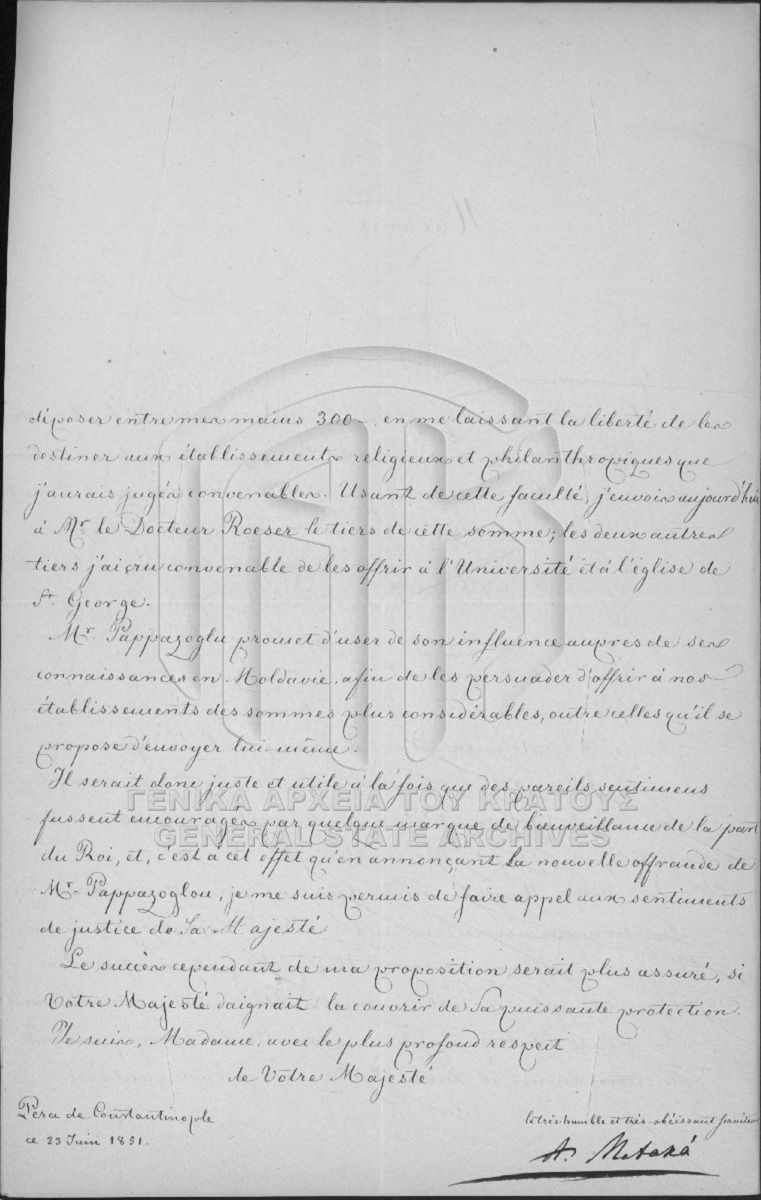 déposer entre mes mains 300 en me laissant la liberté de les
destiner aux établissements religieux et philanthropiques que
j'aurais jugés convenables. Usant de cette faculté, j'envoie aujourd'hui
à Mr. le Docteur Roeser le tiers de cette somme; les deux autres
tiers j'ai cru convenable de les offrir à l'Université et à l'église de
St. George.
Mr. Pappazoglu promet d'user de son influence auprès de ses
connaissances en Moldavie, afin de les persuader d'offrir à nos
établissements des sommes plus considérables, outre celles qu'il se
propose d'envoyer lui-même.
Il serait donc juste et utile à la fois que des pareils sentimens
fussent encouragés par quelque marque de bienveillance de la part
du Roi, et, c'est à cet effet qu'en annonçant la nouvelle offrande de
Mr. Pappazoglou, je me suis permis de faire appel aux sentiments
de justice de Sa Majesté
Le succès cependant de ma proposition serait plus assuré, si
Votre Majesté daignait la couvrir de Sa puissante protection.
Je suis, Madame, avec le plus profond respect
de Votre Majesté
Pera de Constantinople
ce 23 Juin 1851.
le très-humble et très-obéissant serviteur
A. Metaxá
ΓΕΝΙΚΑ ΑΡΧΕΙΑ ΤΟΥ ΚΡΑΤΟΥΣ
GENERAL STATE ARCHIVES